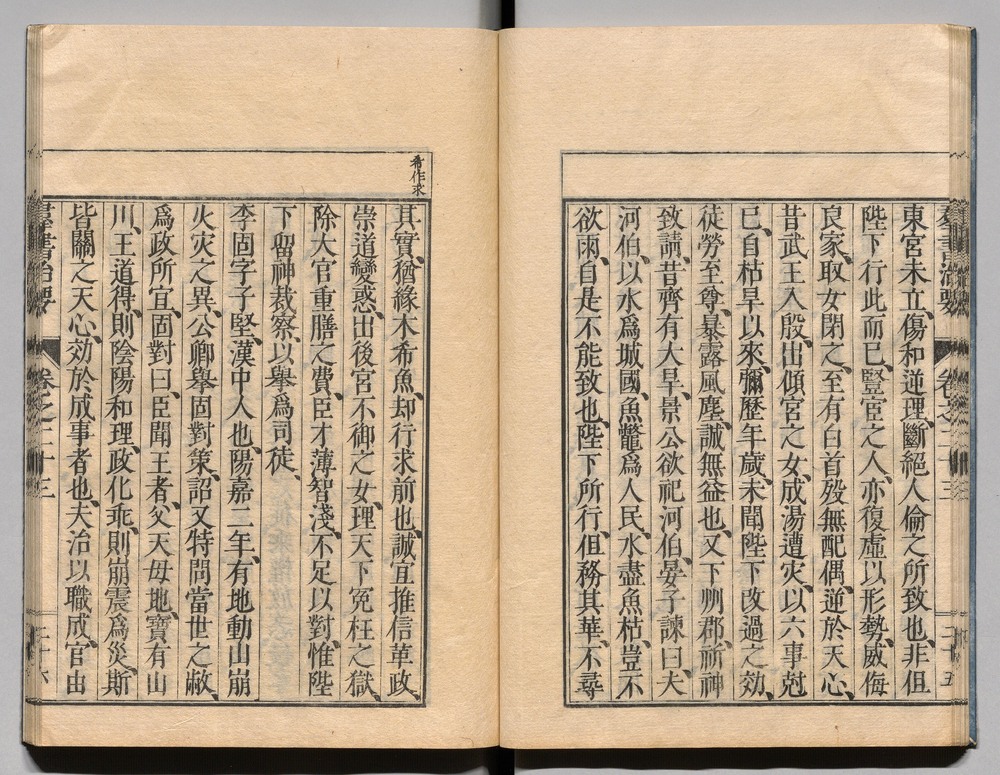 羣書治要 卷之二十三 二十五
東宮未立、傷和逆理、斷絕人倫之所致也、非但
陛下行此而已、豎宦之人、亦復虛以形勢、威侮
良家、取女閉之、至有白首歿無配偶、逆於天心、
昔武王入殷、出傾宮之女、成湯遭灾、以六事剋
已、自枯旱以來、彌歷年歲、未聞陛下改過之効、
徒勞至尊、暴露風塵、誠無益也、又下州郡、祈神
致請、昔齊有大旱、景公欲祀河伯、晏子諫曰、夫
河伯、以水爲城國、魚鼈爲人民、水盡魚枯、豈不
欲雨、自是不能致也、陛下所行、但務其華、不尋
希作求
其實、猶緣木希魚、却行求前也、誠宜推信革政、
崇道變惑、出後宮不御之女、理天下冤枉之獄、
除大官重膳之費、臣才薄智淺、不足以對、惟陛
下留神裁察、以舉爲司徒、
李固字子堅、漢中人也、陽嘉二年、有地動山崩
火灾之異、公卿舉固對策、詔又特問當世之敝、
爲政所宜、固對曰、臣聞王者、父天母地、寶有山
川、王道得、則陰陽和理、政化乖、則崩震爲災、斯
皆關之天心、効於成事者也、夫治以職成、官由
羣書治要 卷之二十三 二十六